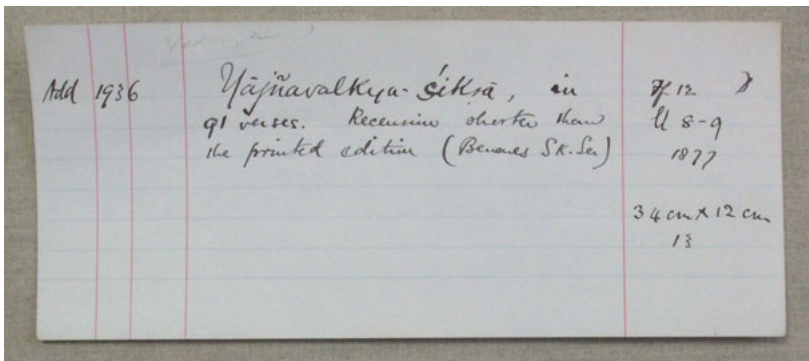 Add 1936 Yājñavalkya-Śikṣā, in ff 12
91 verses. Recension shorter than ll 8-9
the printed edition (Benares Sk. Ser) 1877
34 cm × 12 cm
13